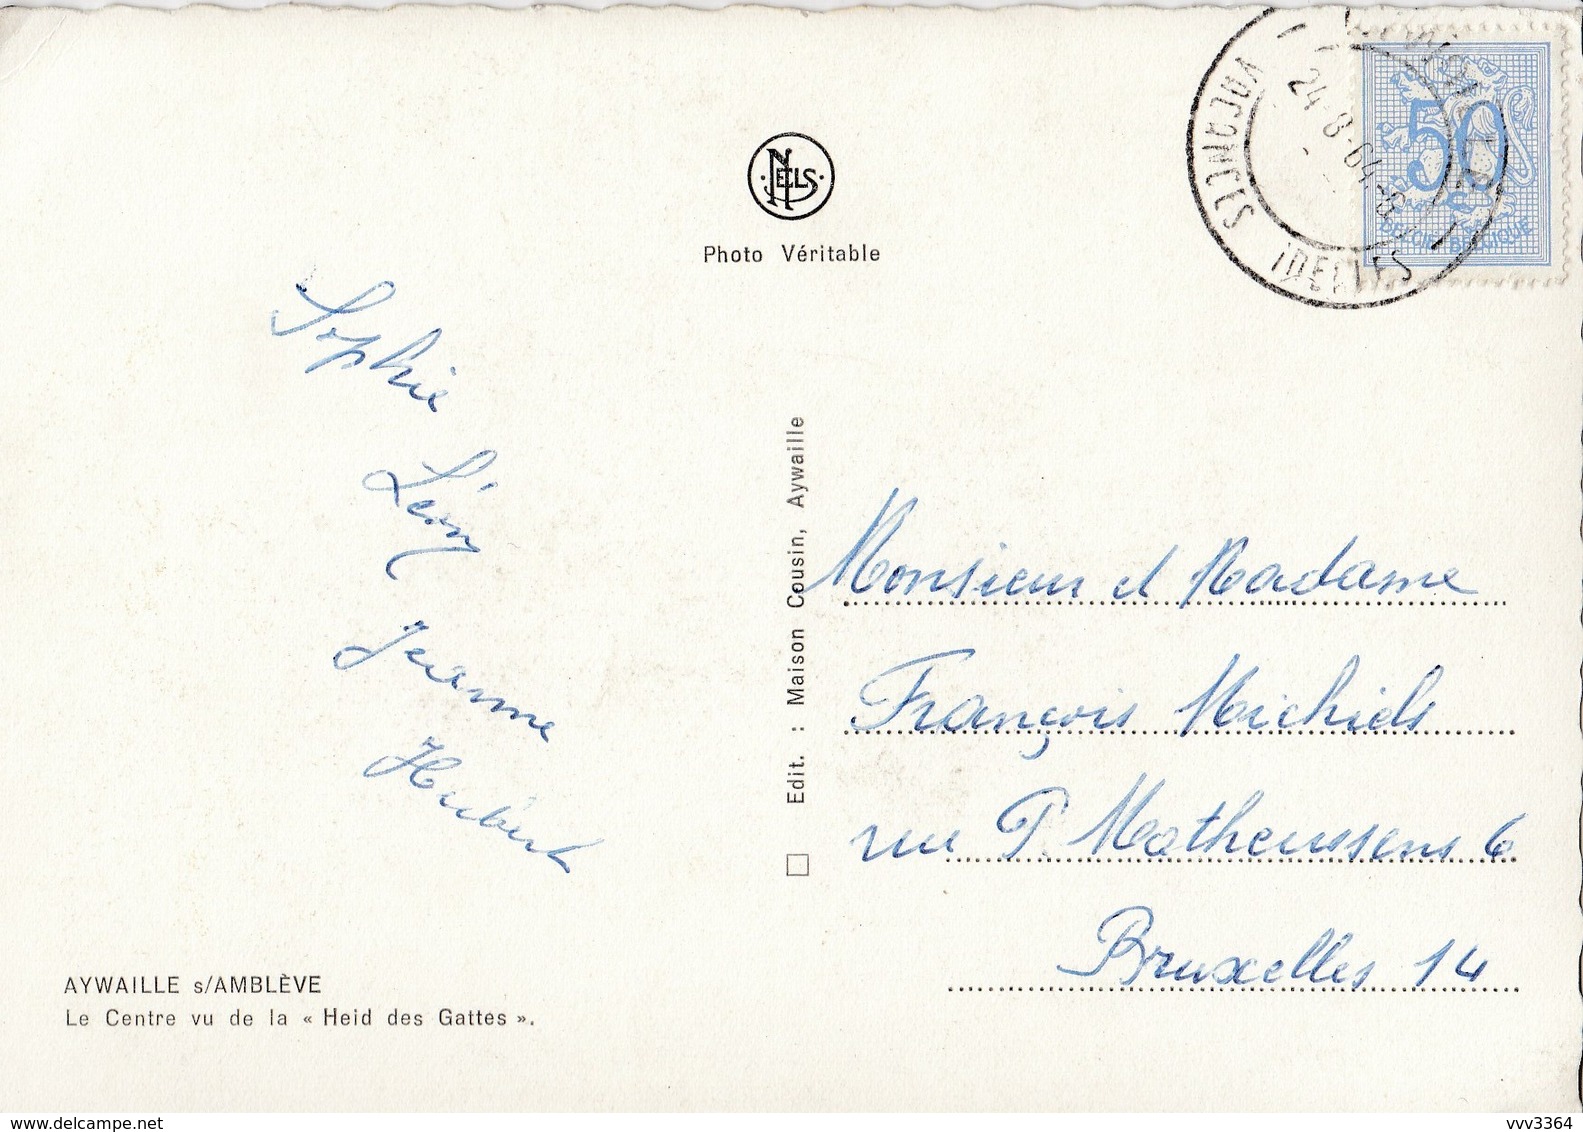 NELS
Photo Véritable
VACANCES IDEALES
24-8-64
50
BELGIE-BELGIQUE
Sophie
Léon
Jeanne
Hubert
Edit. : Maison Cousin, Aywaille
Monsieur et Madame
François Michiels
rue P. Matheussens 6
Bruxelles 14
AYWAILLE s/AMBLÈVE
Le Centre vu de la « Heid des Gattes ».
www.delcampe.net
vvv3364